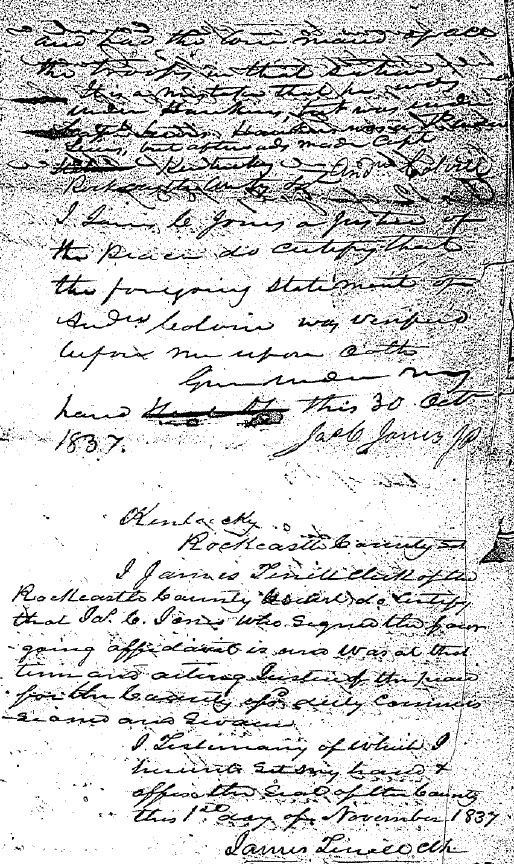 and had the command of all
the troops in that Section
It is a mistake that he was
under Hawkins, but was under
Capt Lewis, Hawkins was
Lieu, but afterwards made Capt
Kentucky Andw Colvill
Rockcastle County
I James C. Jones a Justice of
the Peace do certify that
the foregoing statement of
Andw Colvin was verified
before me upon oath
Given under my
hand this 30 Oct
1837. Jas C Jones JP
Kentucky
Rockcastle County
I James Terrill Clerk of the
Rockcastle County Court do certify
that Jas. C. Jones who signed the fore
going affidavit is and was at that
time and acting Justice of the peace
for the County afsd duly commis
sioned and Sworn
I Testimony of which I
hereunto Set my hand &
affix the Seal of the County
this 1st day of November 1837
James Terrill Clk